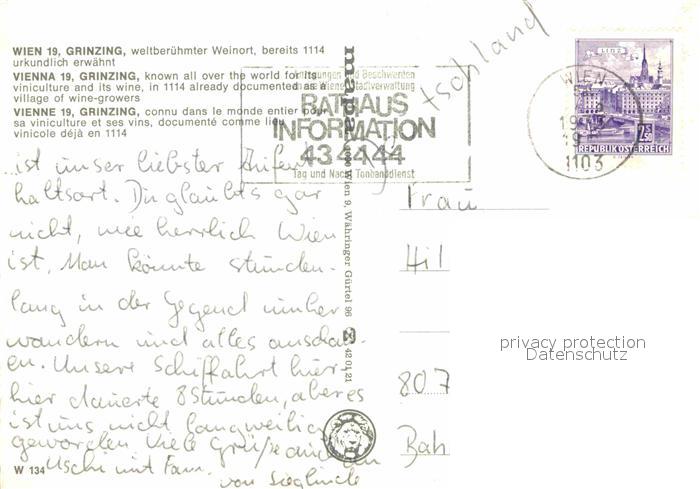 WIEN 19, GRINZING, weltberühmter Weinort, bereits 1114
urkundlich erwähnt
VIENNA 19, GRINZING, known all over the world for its
viniculture and its wine, in 1114 already documented as a
village of wine-growers
VIENNE 19, GRINZING, connu dans le monde entier pour
sa viniculture et ses vins, documenté comme lieu
vinicole déjà en 1114
...ist unser liebster Aufent-
haltsort. Du glaubst gar
nicht, wie herrlich Wien
ist. Man könnte stunden-
lang in der Gegend umher
wandern und alles anschau-
en. Unsere Schiffahrt hier-
hier dauerte 8 Stunden, aber es
ist uns nicht langweilig
geworden Viele Grüße auch an
Uschi mit Fam.
von Sieglinde
W 134
mapa
Wien 9, Währinger Gürtel 96
42 01 21
Anregungen und Beschwerden
an die Wiener Stadtverwaltung
RATHAUS
INFORMATION
43 44 44
Tag und Nacht Tonbanddienst
tschland
WIEN
1103
LINZ
2.50
REPUBLIK ÖSTERREICH
Frau
Hil
807
Bah
privacy protection
Datenschutz